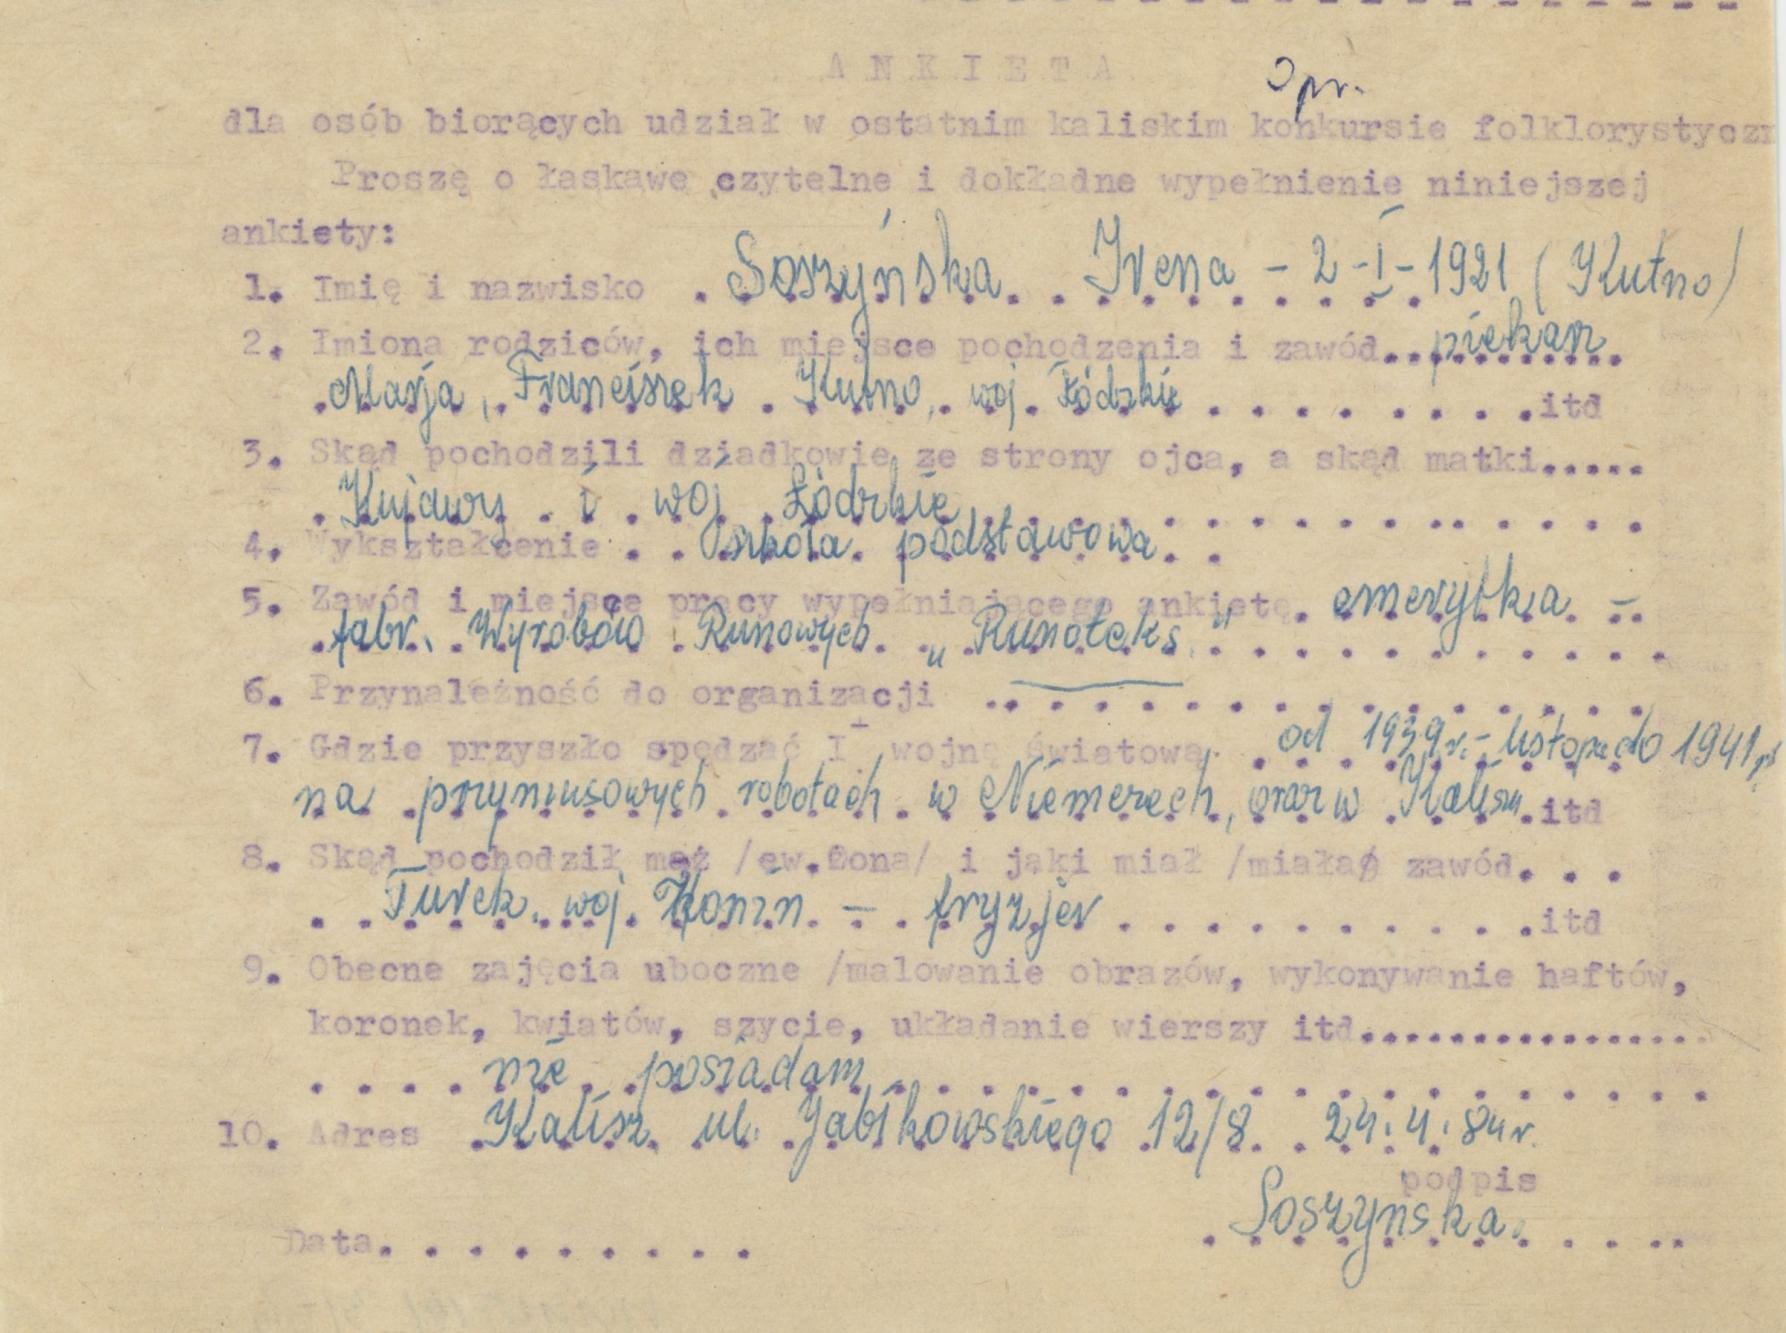 ANKIETA
Opr.
dla osób biorących udział w ostatnim kaliskim konkursie folklorystyczn
Proszę o łaskawe czytelne i dokładne wypełnienie niniejszej
ankiety:
1. Imię i nazwisko . Soszyńska Irena - 2-I-1921 (Kutno)
2. Imiona rodziców, ich miejsce pochodzenia i zawód.. piekarz
Marja, Franciszek Kutno, woj. Łódzkie . . . . . . . . .itd
3. Skąd pochodzili dziadkowie ze strony ojca, a skąd matki.....
Kujawy i woj Łódzkie . . . . . . . . . . . . .
4. Wykształcenie . . szkoła podstawowa. .
5. Zawód i miejsce pracy wypełniającego ankietę. emerytka -
fabr. Wyrobów Runowych „Runoteks" . . . . . . . . . . .
6. Przynależność do organizacji .. . . . . . . . . . . . . . .
7. Gdzie przyszło spędzać I wojnę światową. od 1939r. - listopado 1941r
na przymusowych robotach w Niemczech, oraz w Kaliszu.itd
8. Skąd pochodził mąż /ew.żona/ i jaki miał /miała/ zawód. . .
. . Turek. woj. Konin - fryzjer . . . . . . . . . . .itd
9. Obecne zajęcia uboczne /malowanie obrazów, wykonywanie haftów,
koronek, kwiatów, szycie, układanie wierszy itd................
. . . . nie posiadam . . . . . . . . . . . . . . . . .
10. Adres Kalisz ul. Jabłkowskiego 12/8. 24.4.84r.
podpis
Soszynska.
Data. . . . . . . . .